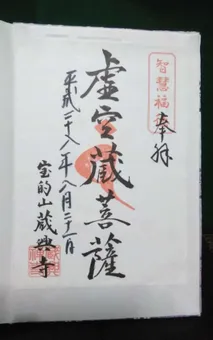 奉拝
智慧福
虚空蔵菩薩
平成二十八年八月二十一日
宝的山蔵興寺